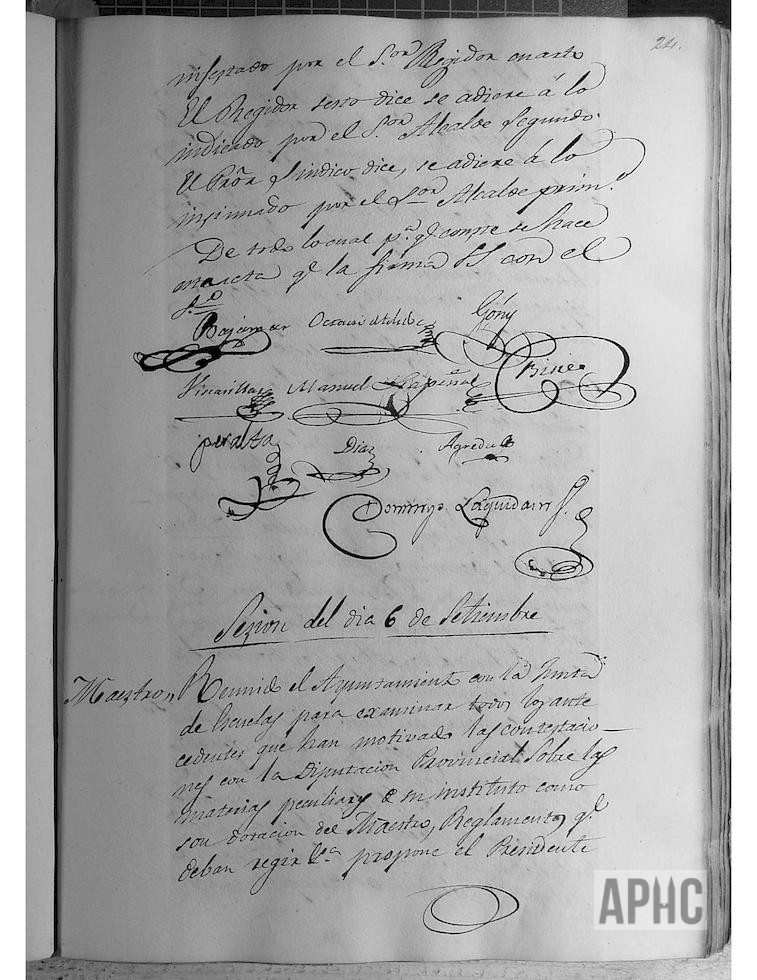 24.
insertado por el S.or Regidor cuarto
El Regidor sesto dice se adiere á lo
indicado por el S.or Alcalde Segundo.
El Pror Sindico dice, se adiere á lo
insinuado por el Sor Alcalde prim.o
De todo lo cual p.a q.e conste se hace
acta q.e la firma SS con el
S.rio
Bajamar
Góñy
Vizcarillas Manuel Espiñal
peralta Diaz Agreda
Domingo Laquidain S.
Sesion del dia 6 de Setiembre
Maestro,, Reunido el Ayuntamiento con la Junta
de Escuelas para examinar todos los ante
cedentes que han motivado las contestacio-
nes con la Diputacion Provincial Sobre las
materias peculiares de su instituto como
son dotacion del Maestro, Reglamentos q.e
deban regir &.a propone el Presidente
APHC